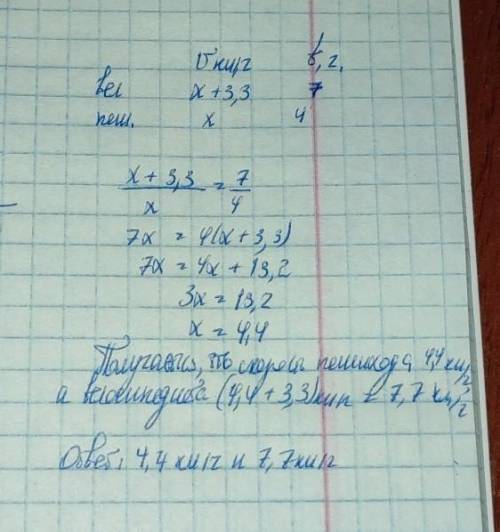 V км/ч t, ч.
вел x + 3,3 7
пеш. x 4
x + 3,3 / x = 7 / 4
7x = 4(x + 3,3)
7x = 4x + 13,2
3x = 13,2
x = 4,4
Получается, что скорость пешехода 4,4 км/ч,
а велосипедиста (4,4 + 3,3) км/ч = 7,7 км/ч
Ответ: 4,4 км/ч и 7,7 км/ч